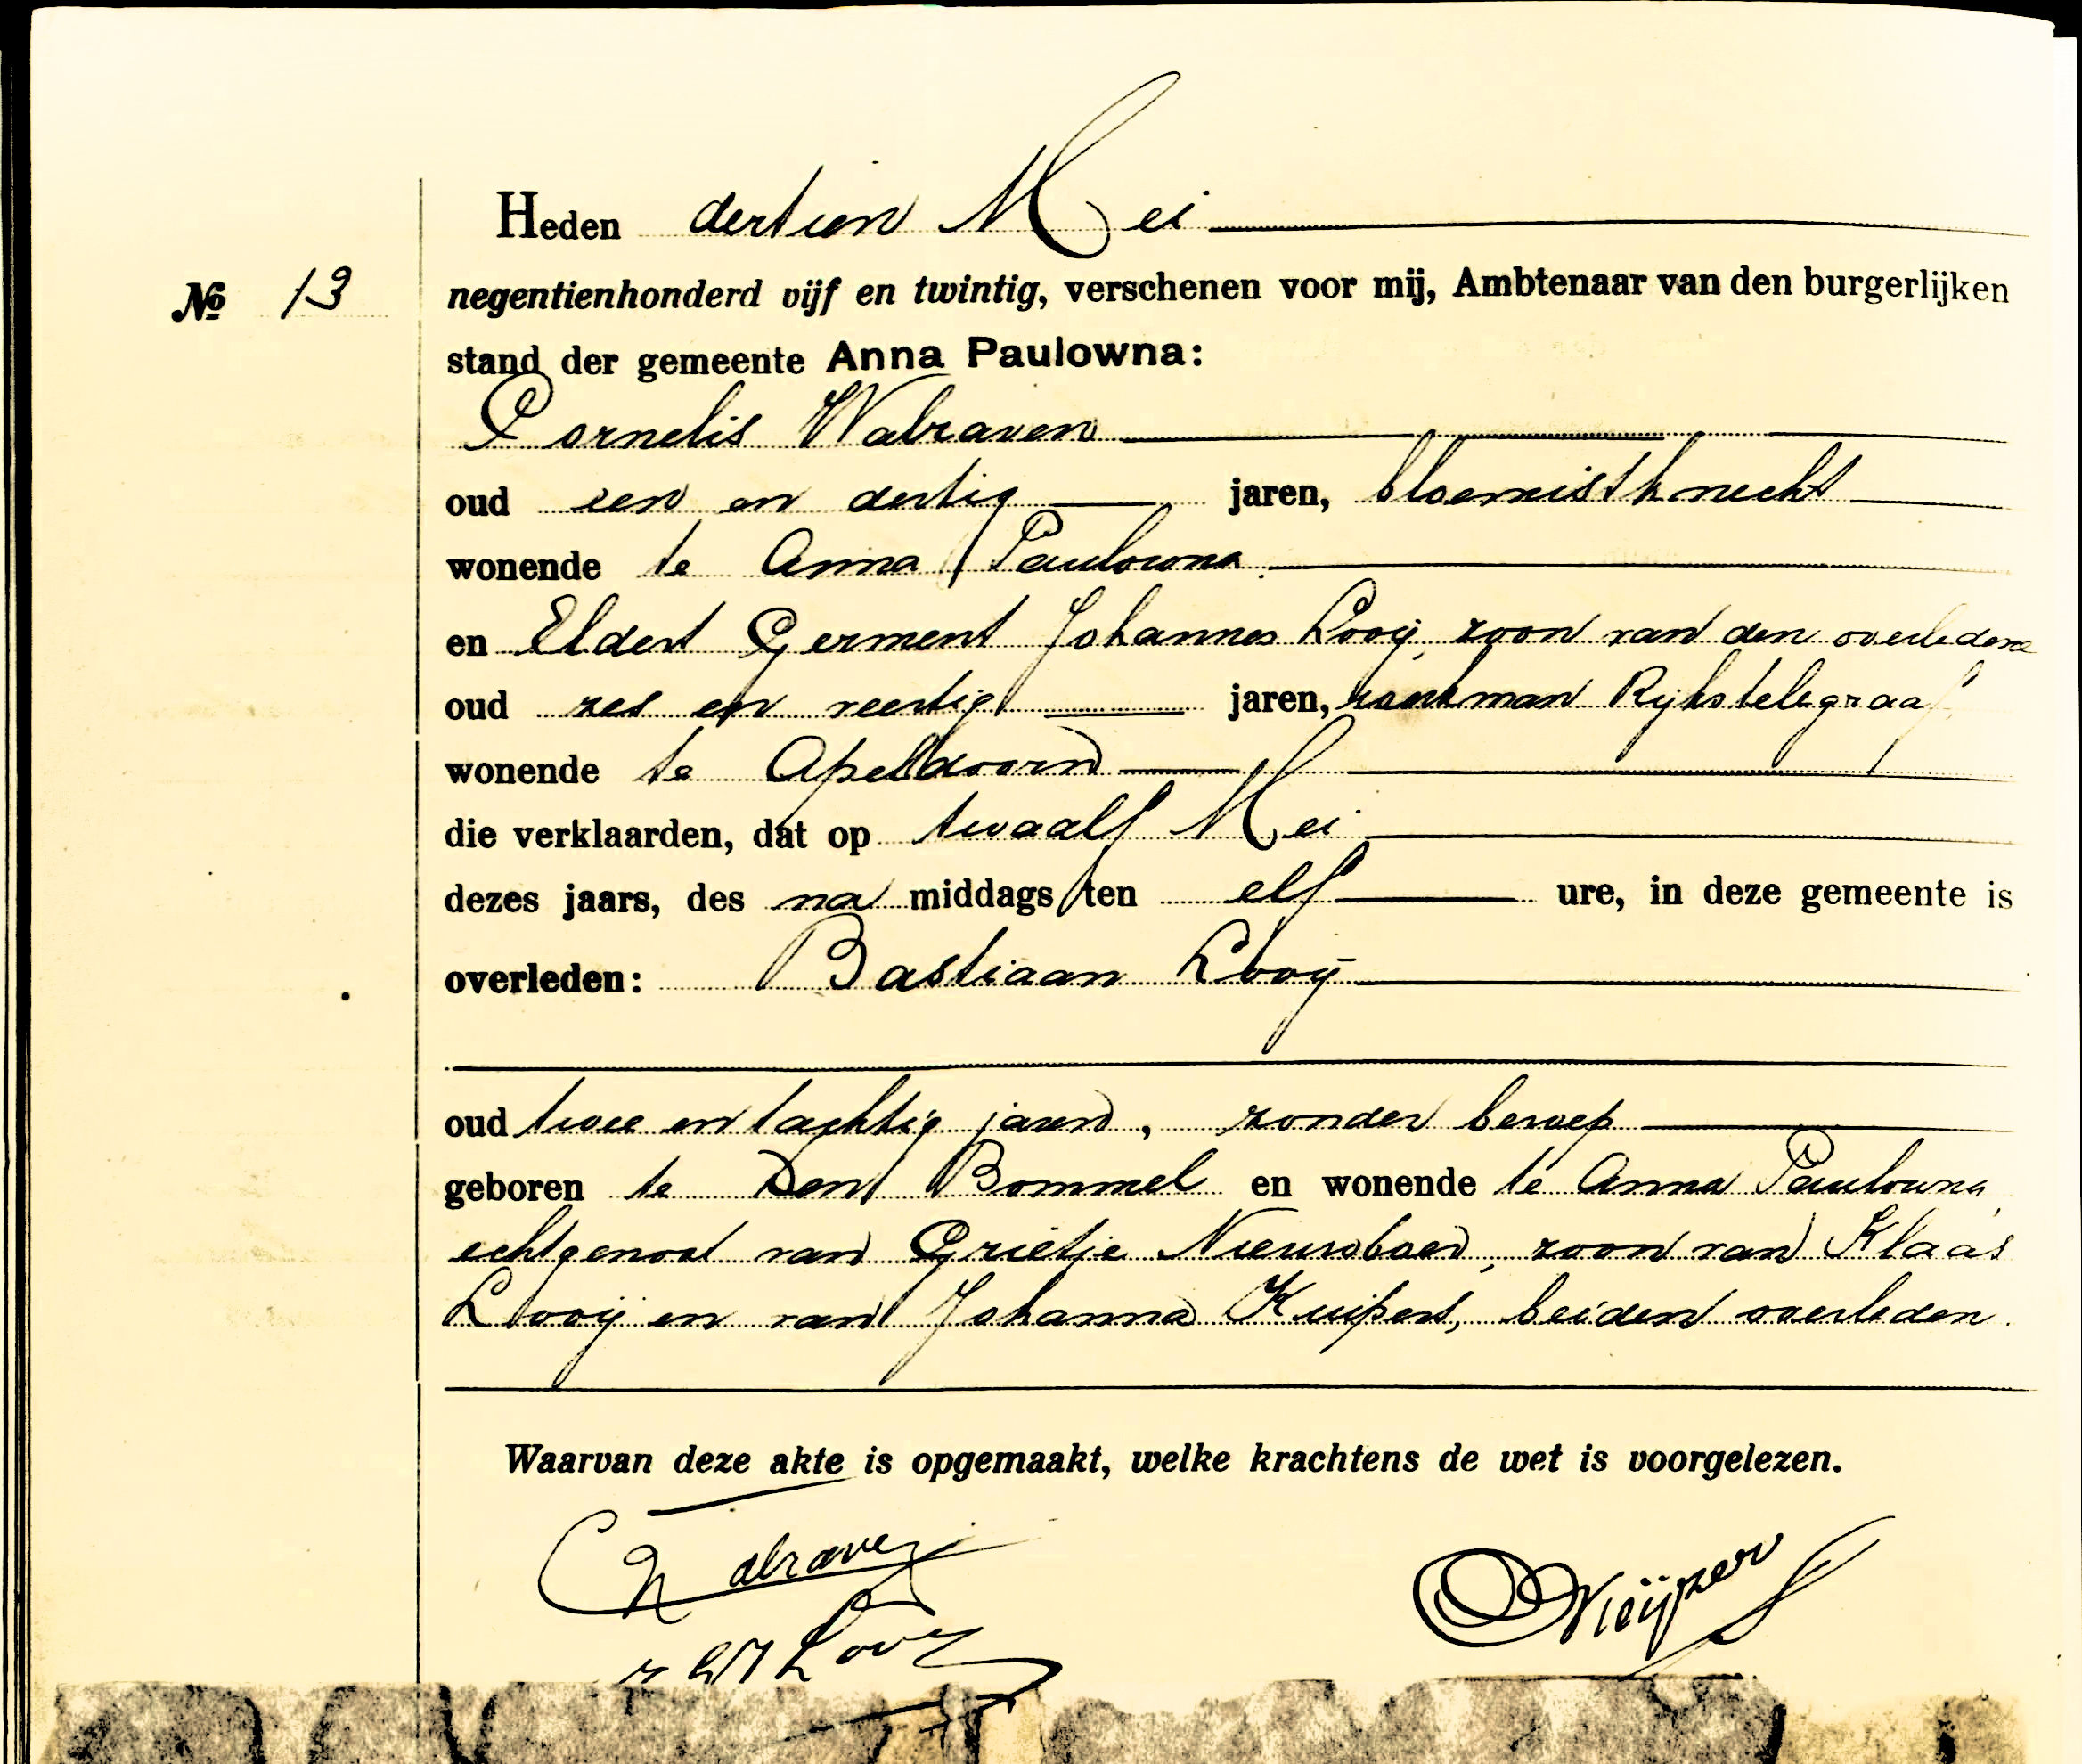 Heden dertien Mei
№ 13
negentienhonderd vijf en twintig, verschenen voor mij, Ambtenaar van den burgerlijken
stand der gemeente Anna Paulowna:
Cornelis Walraven
oud een en dertig jaren, bloemistknecht
wonende te Anna Paulowna
en Eldert Germent Johannes Looij, zoon van den overledene
oud zes en veertig jaren, vakman Rijkstelegraaf,
wonende te Apeldoorn
die verklaarden, dat op twaalf Mei
dezes jaars, des na middags ten elf ure, in deze gemeente is
overleden: Bastiaan Looij
oud twee en tachtig jaren, zonder beroep
geboren te Den Bommel en wonende te Anna Paulowna,
echtgenoot van Grietje Nieuwboer, zoon van Klaas
Looij en van Johanna Kuipers, beiden overleden.
Waarvan deze akte is opgemaakt, welke krachtens de wet is voorgelezen.
C Walraven
Looij